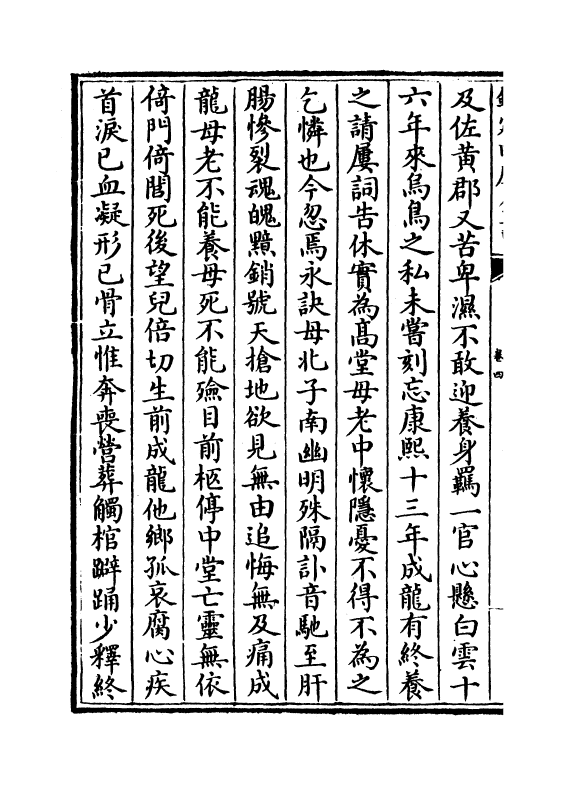 及佐黄郡又苦卑濕不敢迎養身羈一官心懸白雲十
六年來烏鳥之私未嘗刻忘康熙十三年成龍有終養
之請屢詞告休實為髙堂母老中懷隱憂不得不為之
乞憐也今忽焉永訣母北子南幽明殊隔訃音馳至肝
腸慘裂魂魄黯銷號天搶地欲見無由追悔無及痛成
龍母老不能養母死不能殮目前柩停中堂亡靈無依
倚門倚閭死後望兒倍切生前成龍他鄉孤哀腐心疾
首淚已血凝形已骨立惟奔喪營葬觸棺擗踊少釋終
卷四